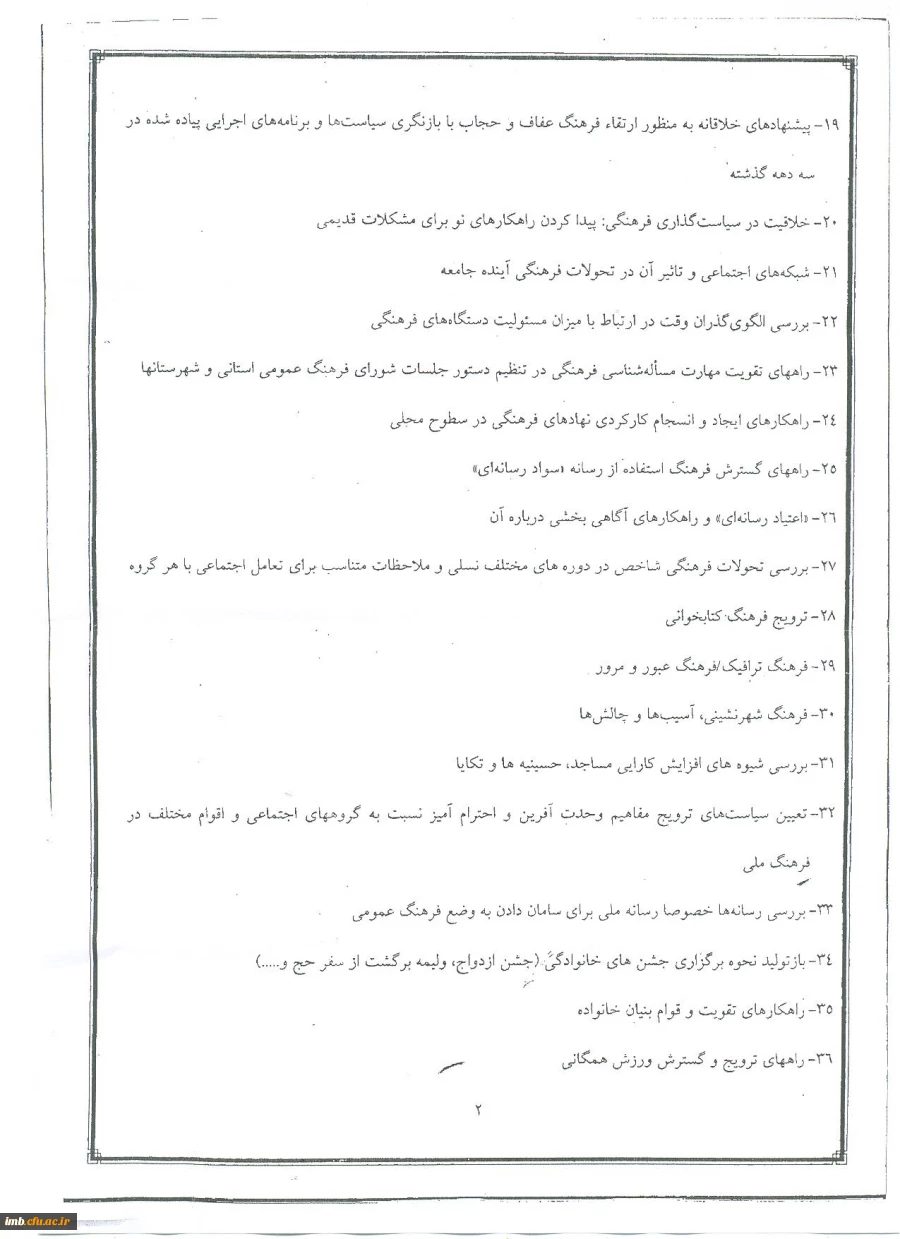 ۱۹- پیشنهادهای خلاقانه به منظور ارتقاء فرهنگ عفاف و حجاب با بازنگری سیاست‌ها و برنامه‌های اجرایی پیاده شده در
سه دهه گذشته
۲۰- خلاقیت در سیاست‌گذاری فرهنگی: پیدا کردن راهکارهای نو برای مشکلات قدیمی
۲۱- شبکه‌های اجتماعی و تاثیر آن در تحولات فرهنگی آینده جامعه
۲۲- بررسی الگوی‌گذران وقت در ارتباط با میزان مسئولیت دستگاه‌های فرهنگی
۲۳- راههای تقویت مهارت مسأله‌شناسی فرهنگی در تنظیم دستور جلسات شورای فرهنگ عمومی استانی و شهرستانها
۲٤- راهکارهای ایجاد و انسجام کارکردی نهادهای فرهنگی در سطوح محلی
۲۵- راههای گسترش فرهنگ استفاده از رسانه «سواد رسانه‌ای»
۲٦- «اعتیاد رسانه‌ای» و راهکارهای آگاهی بخشی درباره آن
۲۷- بررسی تحولات فرهنگی شاخص در دوره های مختلف نسلی و ملاحظات متناسب برای تعامل اجتماعی با هر گروه
۲۸- ترویج فرهنگ کتابخوانی
۲۹- فرهنگ ترافیک/فرهنگ عبور و مرور
۳۰- فرهنگ شهرنشینی، آسیب‌ها و چالش‌ها
۳۱- بررسی شیوه های افزایش کارایی مساجد، حسینیه ها و تکایا
۳۲- تعیین سیاست‌های ترویج مفاهیم وحدت آفرین و احترام آمیز نسبت به گروههای اجتماعی و اقوام مختلف در
فرهنگ ملی
۳۳- بررسی رسانه‌ها خصوصا رسانه ملی برای سامان دادن به وضع فرهنگ عمومی
۳٤- بازتولید نحوه برگزاری جشن های خانوادگی (جشن ازدواج، ولیمه برگشت از سفر حج و.....)
۳۵- راهکارهای تقویت و قوام بنیان خانواده
۳٦- راههای ترویج و گسترش ورزش همگانی
۲
imb.cfu.ac.ir